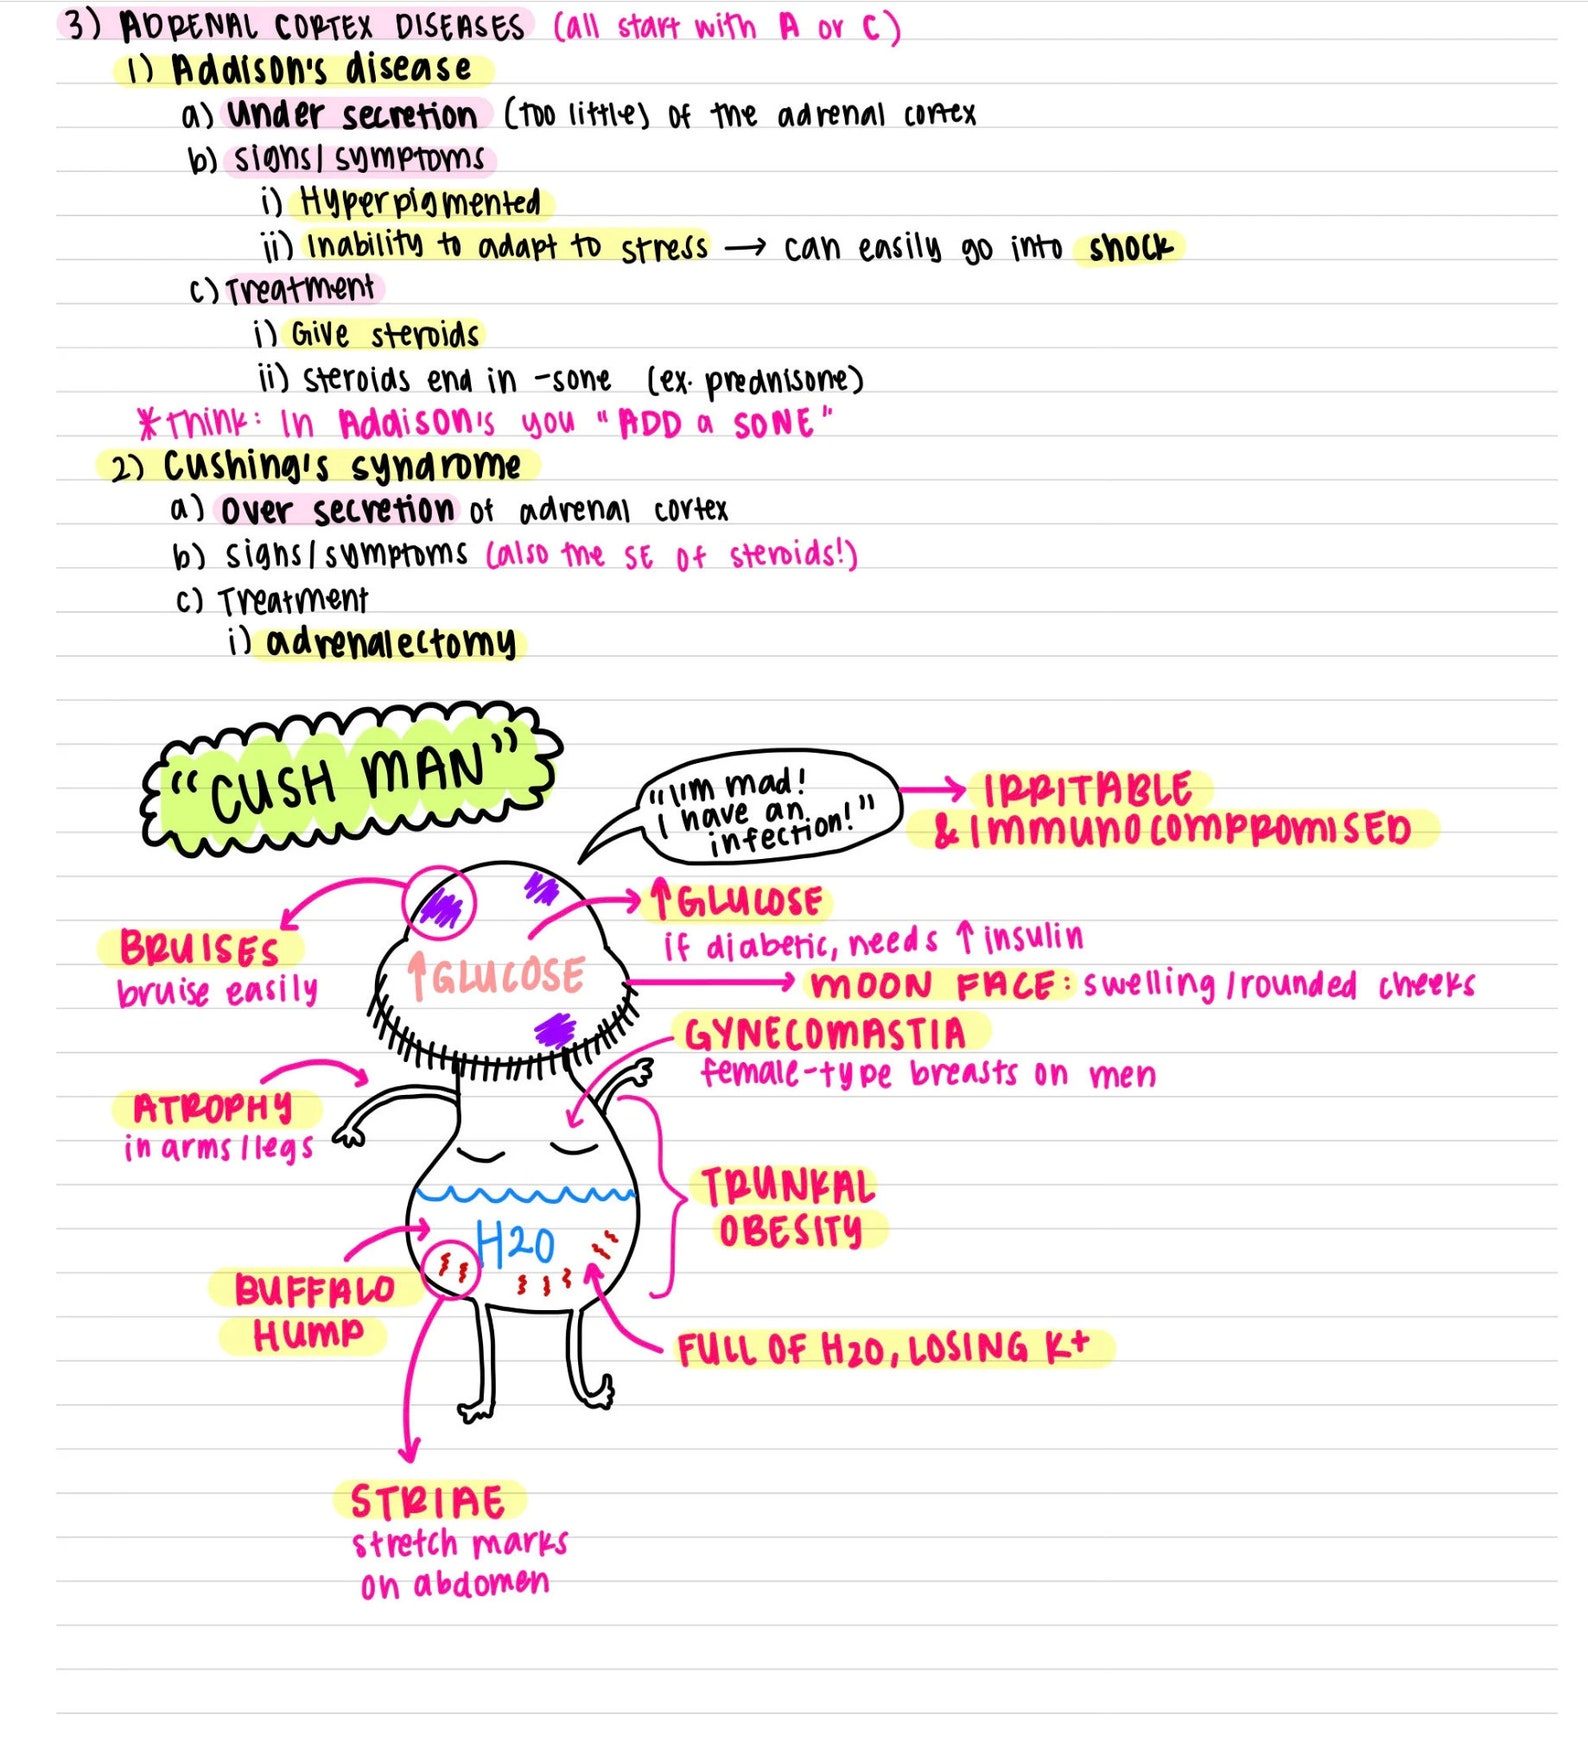 3) ADRENAL CORTEX DISEASES (all start with A or C)
1) Addison's disease
a) under secretion (too little) of the adrenal cortex
b) signs/symptoms
i) Hyperpigmented
ii) Inability to adapt to stress → can easily go into shock
c) Treatment
i) Give steroids
ii) steroids end in -sone (ex. prednisone)
*Think: In Addison's you "ADD a SONE"
2) Cushing's syndrome
a) over secretion of adrenal cortex
b) signs/symptoms (also the SE of steroids!)
c) Treatment
i) adrenalectomy
"CUSH MAN"
"I'm mad!
I have an
infection!"
→ IRRITABLE
& IMMUNOCOMPROMISED
↑GLUCOSE
if diabetic, needs ↑ insulin
BRUISES
bruise easily
↑GLUCOSE
MOON FACE: swelling/rounded cheeks
GYNECOMASTIA
female-type breasts on men
ATROPHY
in arms/legs
TRUNKAL
OBESITY
H2O
BUFFALO
HUMP
FULL OF H2O, LOSING K+
STRIAE
stretch marks
on abdomen